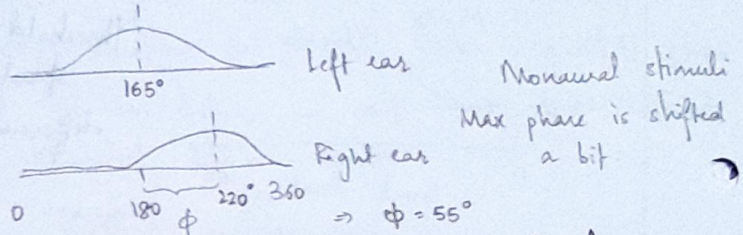 Left ear
165°
Monaural stimuli
Max phase is shifted
a bit
Right ear
0 180 220° 360
ϕ ⇒ ϕ = 55°